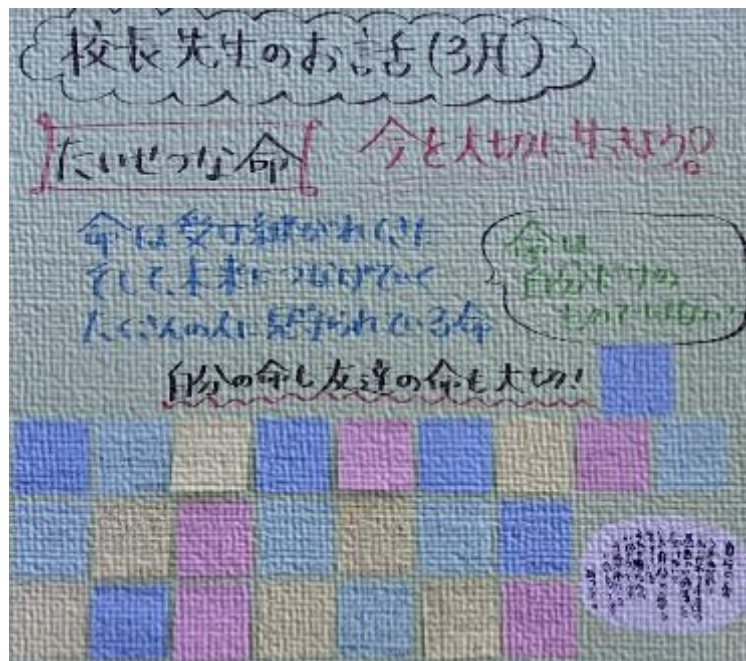 校長先生のお話(3月)
たいせつな命
今を大切に生きよう!
命は受け継がれてきた
そして、未来につなげていく
たくさんの人に見守られている命
命は
自分だけの
ものではない!
自分の命も友達の命も大切!